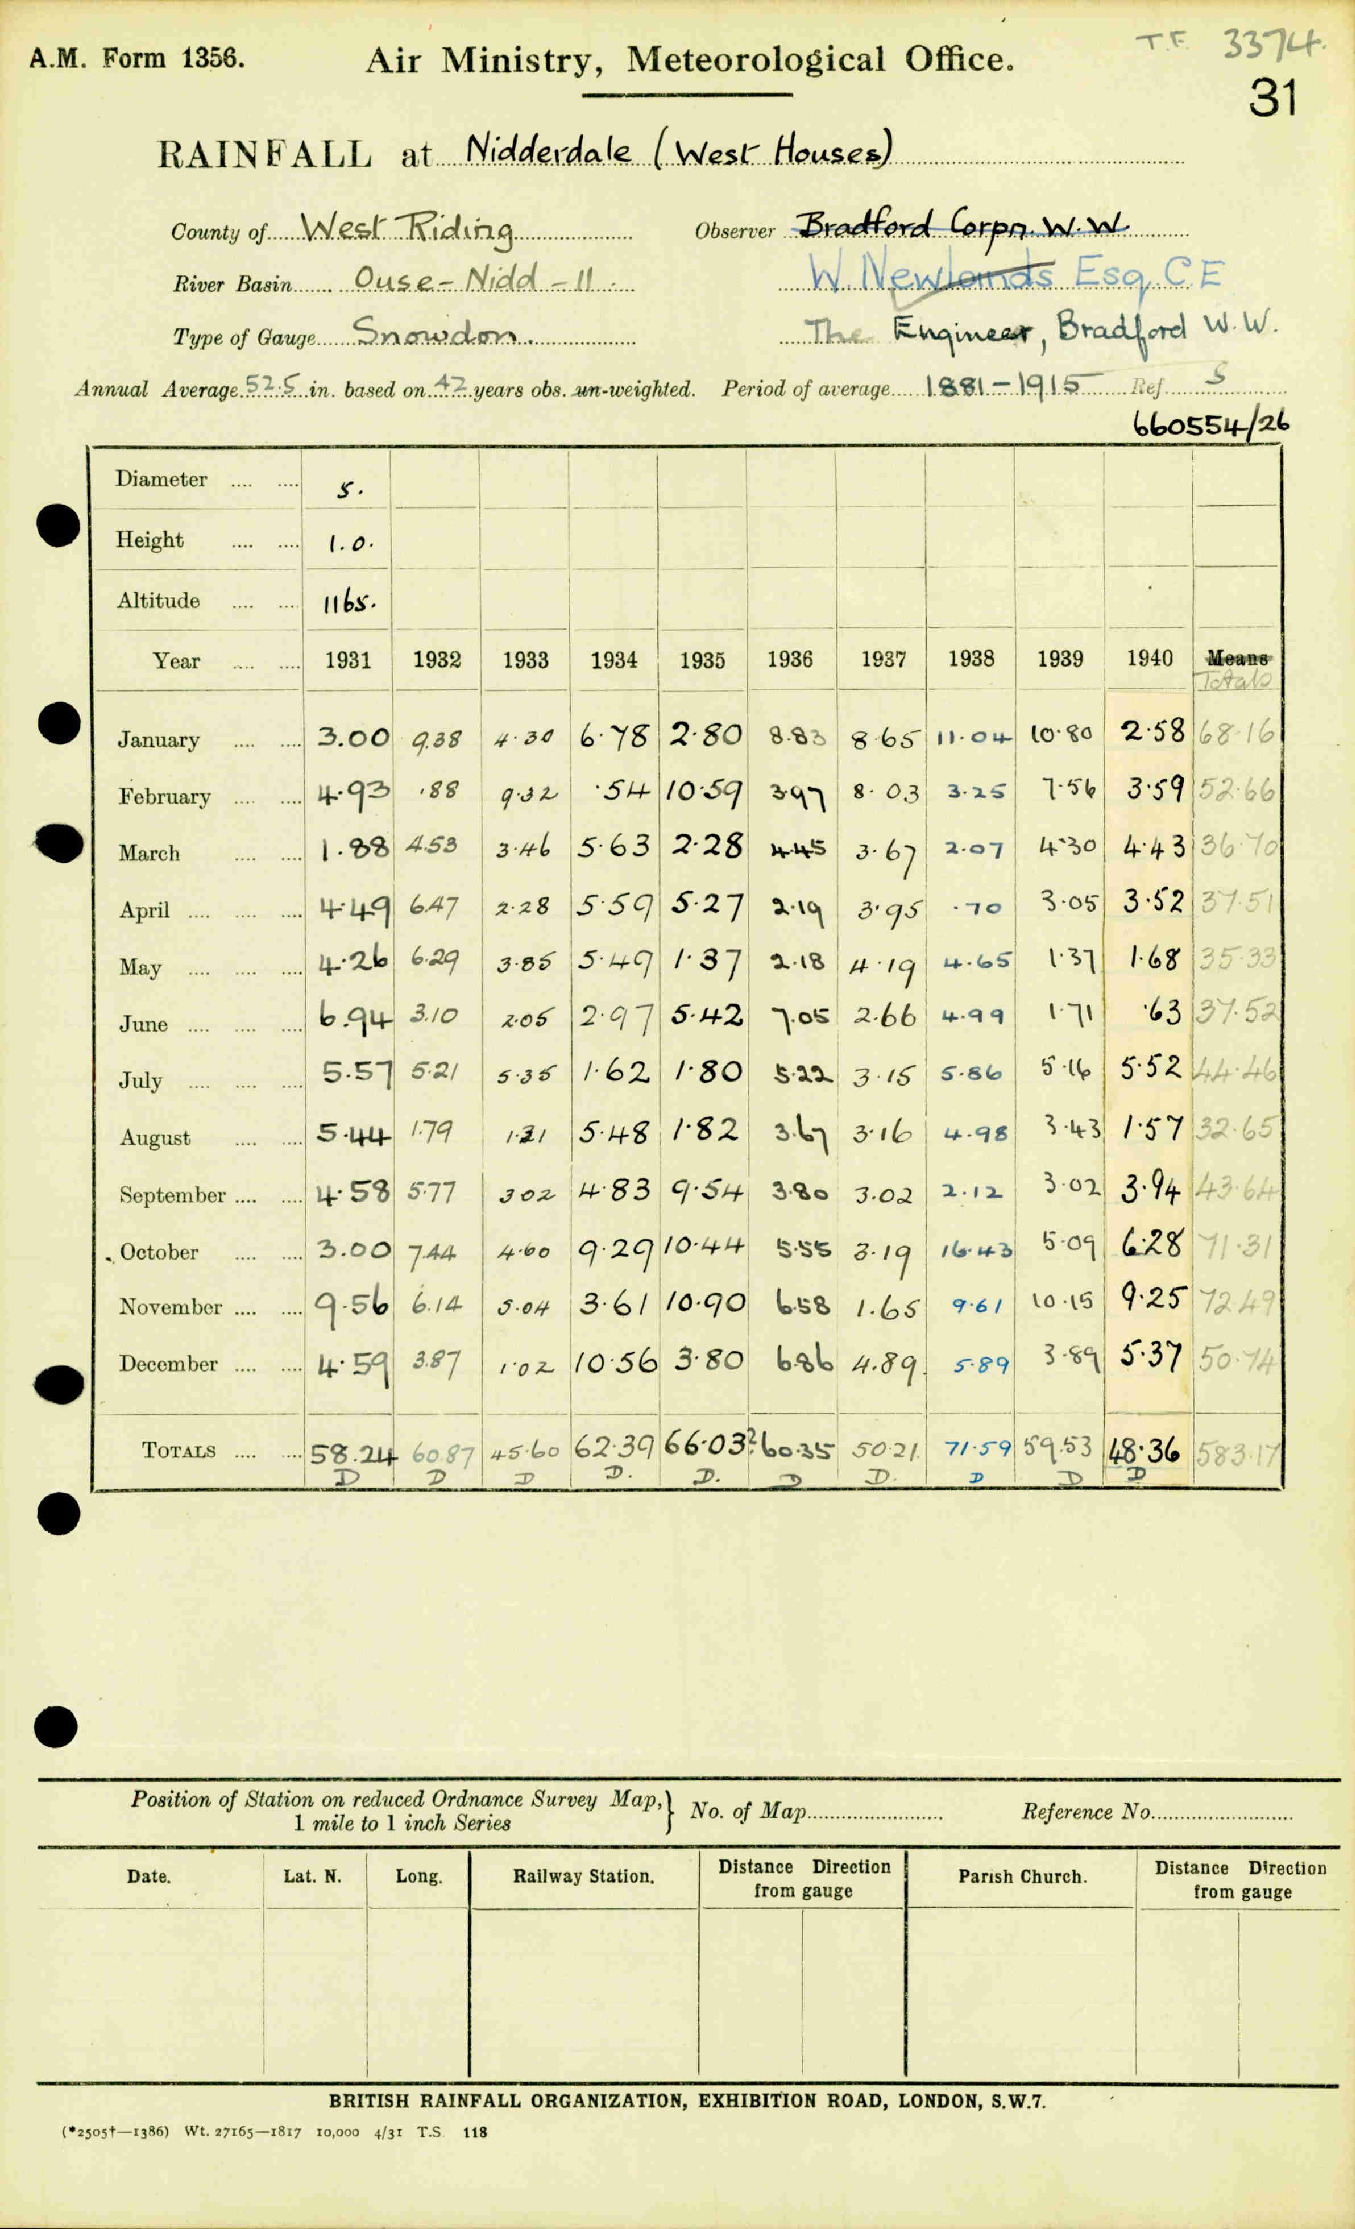 T.F. 3374.
A.M. Form 1356. Air Ministry, Meteorological Office.
31
RAINFALL at Nidderdale (West Houses)
County of West Riding Observer Bradford Corpn. W.W.
River Basin Ouse - Nidd - 11 W. Newlands Esq. C E
Type of Gauge Snowdon. The Engineer, Bradford W.W.
Annual Average 52.5 in. based on 42 years obs. un-weighted. Period of average 1881-1915 Ref. S
660554/26
Diameter .... .... 5.
Height .... .... 1.0.
Altitude .... .... 1165.
Year .... .... 1931 1932 1933 1934 1935 1936 1937 1938 1939 1940 Means
Totals
January .... .... 3.00 9.38 4.30 6.78 2.80 8.83 8.65 11.04 10.80 2.58 68.16
February .... .... 4.93 .88 9.32 .54 10.59 3.97 8.03 3.25 7.56 3.59 52.66
March .... .... 1.88 4.53 3.46 5.63 2.28 4.45 3.67 2.07 4.30 4.43 36.70
April .... .... .... 4.49 6.47 2.28 5.59 5.27 2.19 3.95 .70 3.05 3.52 37.51
May .... .... .... 4.26 6.29 3.85 5.49 1.37 2.18 4.19 4.65 1.37 1.68 35.33
June .... .... .... 6.94 3.10 2.05 2.97 5.42 7.05 2.66 4.99 1.71 .63 37.52
July .... .... .... 5.57 5.21 5.35 1.62 1.80 5.22 3.15 5.86 5.16 5.52 44.46
August .... .... 5.44 1.79 1.31 5.48 1.82 3.67 3.16 4.98 3.43 1.57 32.65
September .... .... 4.58 5.77 3.02 4.83 9.54 3.80 3.02 2.12 3.02 3.94 43.64
October .... .... 3.00 7.44 4.60 9.29 10.44 5.55 3.19 16.43 5.09 6.28 71.31
November .... .... 9.56 6.14 5.04 3.61 10.90 6.58 1.65 9.61 10.15 9.25 72.49
December .... .... 4.59 3.87 1.02 10.56 3.80 6.86 4.89 5.89 3.89 5.37 50.74
TOTALS .... .... 58.24 60.87 45.60 62.39 66.03? 60.35 50.21 71.59 59.53 48.36 583.17
D D D D. D. D D. D D D
Position of Station on reduced Ordnance Survey Map,} No. of Map Reference No.
1 mile to 1 inch Series
Date. Lat. N. Long. Railway Station. Distance Direction Parish Church. Distance Direction
from gauge from gauge
BRITISH RAINFALL ORGANIZATION, EXHIBITION ROAD, LONDON, S.W.7.
(*2505†—1386) Wt. 27165—1817 10,000 4/31 T.S. 118